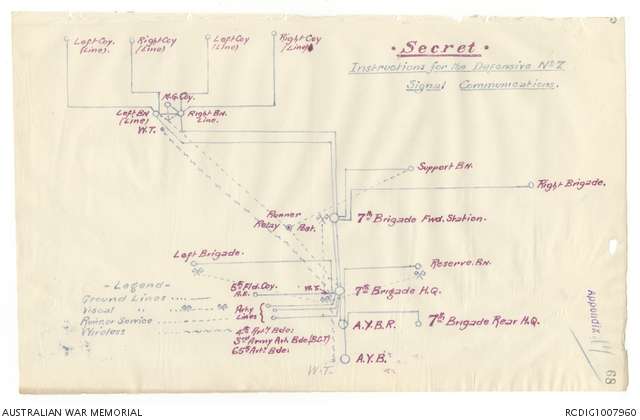 Left Coy. (Line)
Right Coy (Line)
Left Coy (Line)
Right Coy (Line)
• Secret •
Instructions for the Defensive No 7
Signal Communications.
M.G. Coy.
Left BN (Line)
Right BN. Line.
W.T.
Support BN.
Right Brigade.
Runner
Relay Post.
7th Brigade Fwd. Station.
Left Brigade.
Reserve BN.
5th Fld. Coy.
A.E.
W.T.
7th Brigade H.Q.
- Legend -
Ground Lines
Visual "
Runner Service
Wireless
Arty
Lines
4th Arty Bde.
3rd Army Art. Bde.
65th Arty Bde.
A.Y.B.R.
7th Brigade Rear H.Q.
A.Y.B.
W.T.
Appendix
68
AUSTRALIAN WAR MEMORIAL
RCDIG1007960